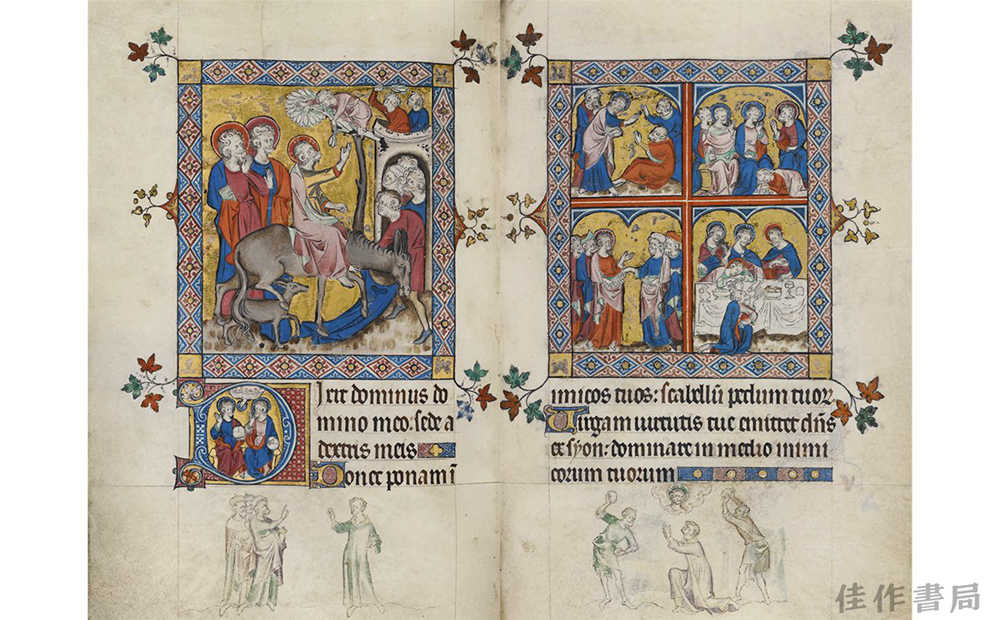 Dixit dominus do
mino meo: sede a
dextris meis
Donec ponam ī
imicos tuos: scabellū pedum tuor
Virgam virtutis tue emittet dn̄s
ex syon: dominare in medio inimi
corum tuorum
佳作書局